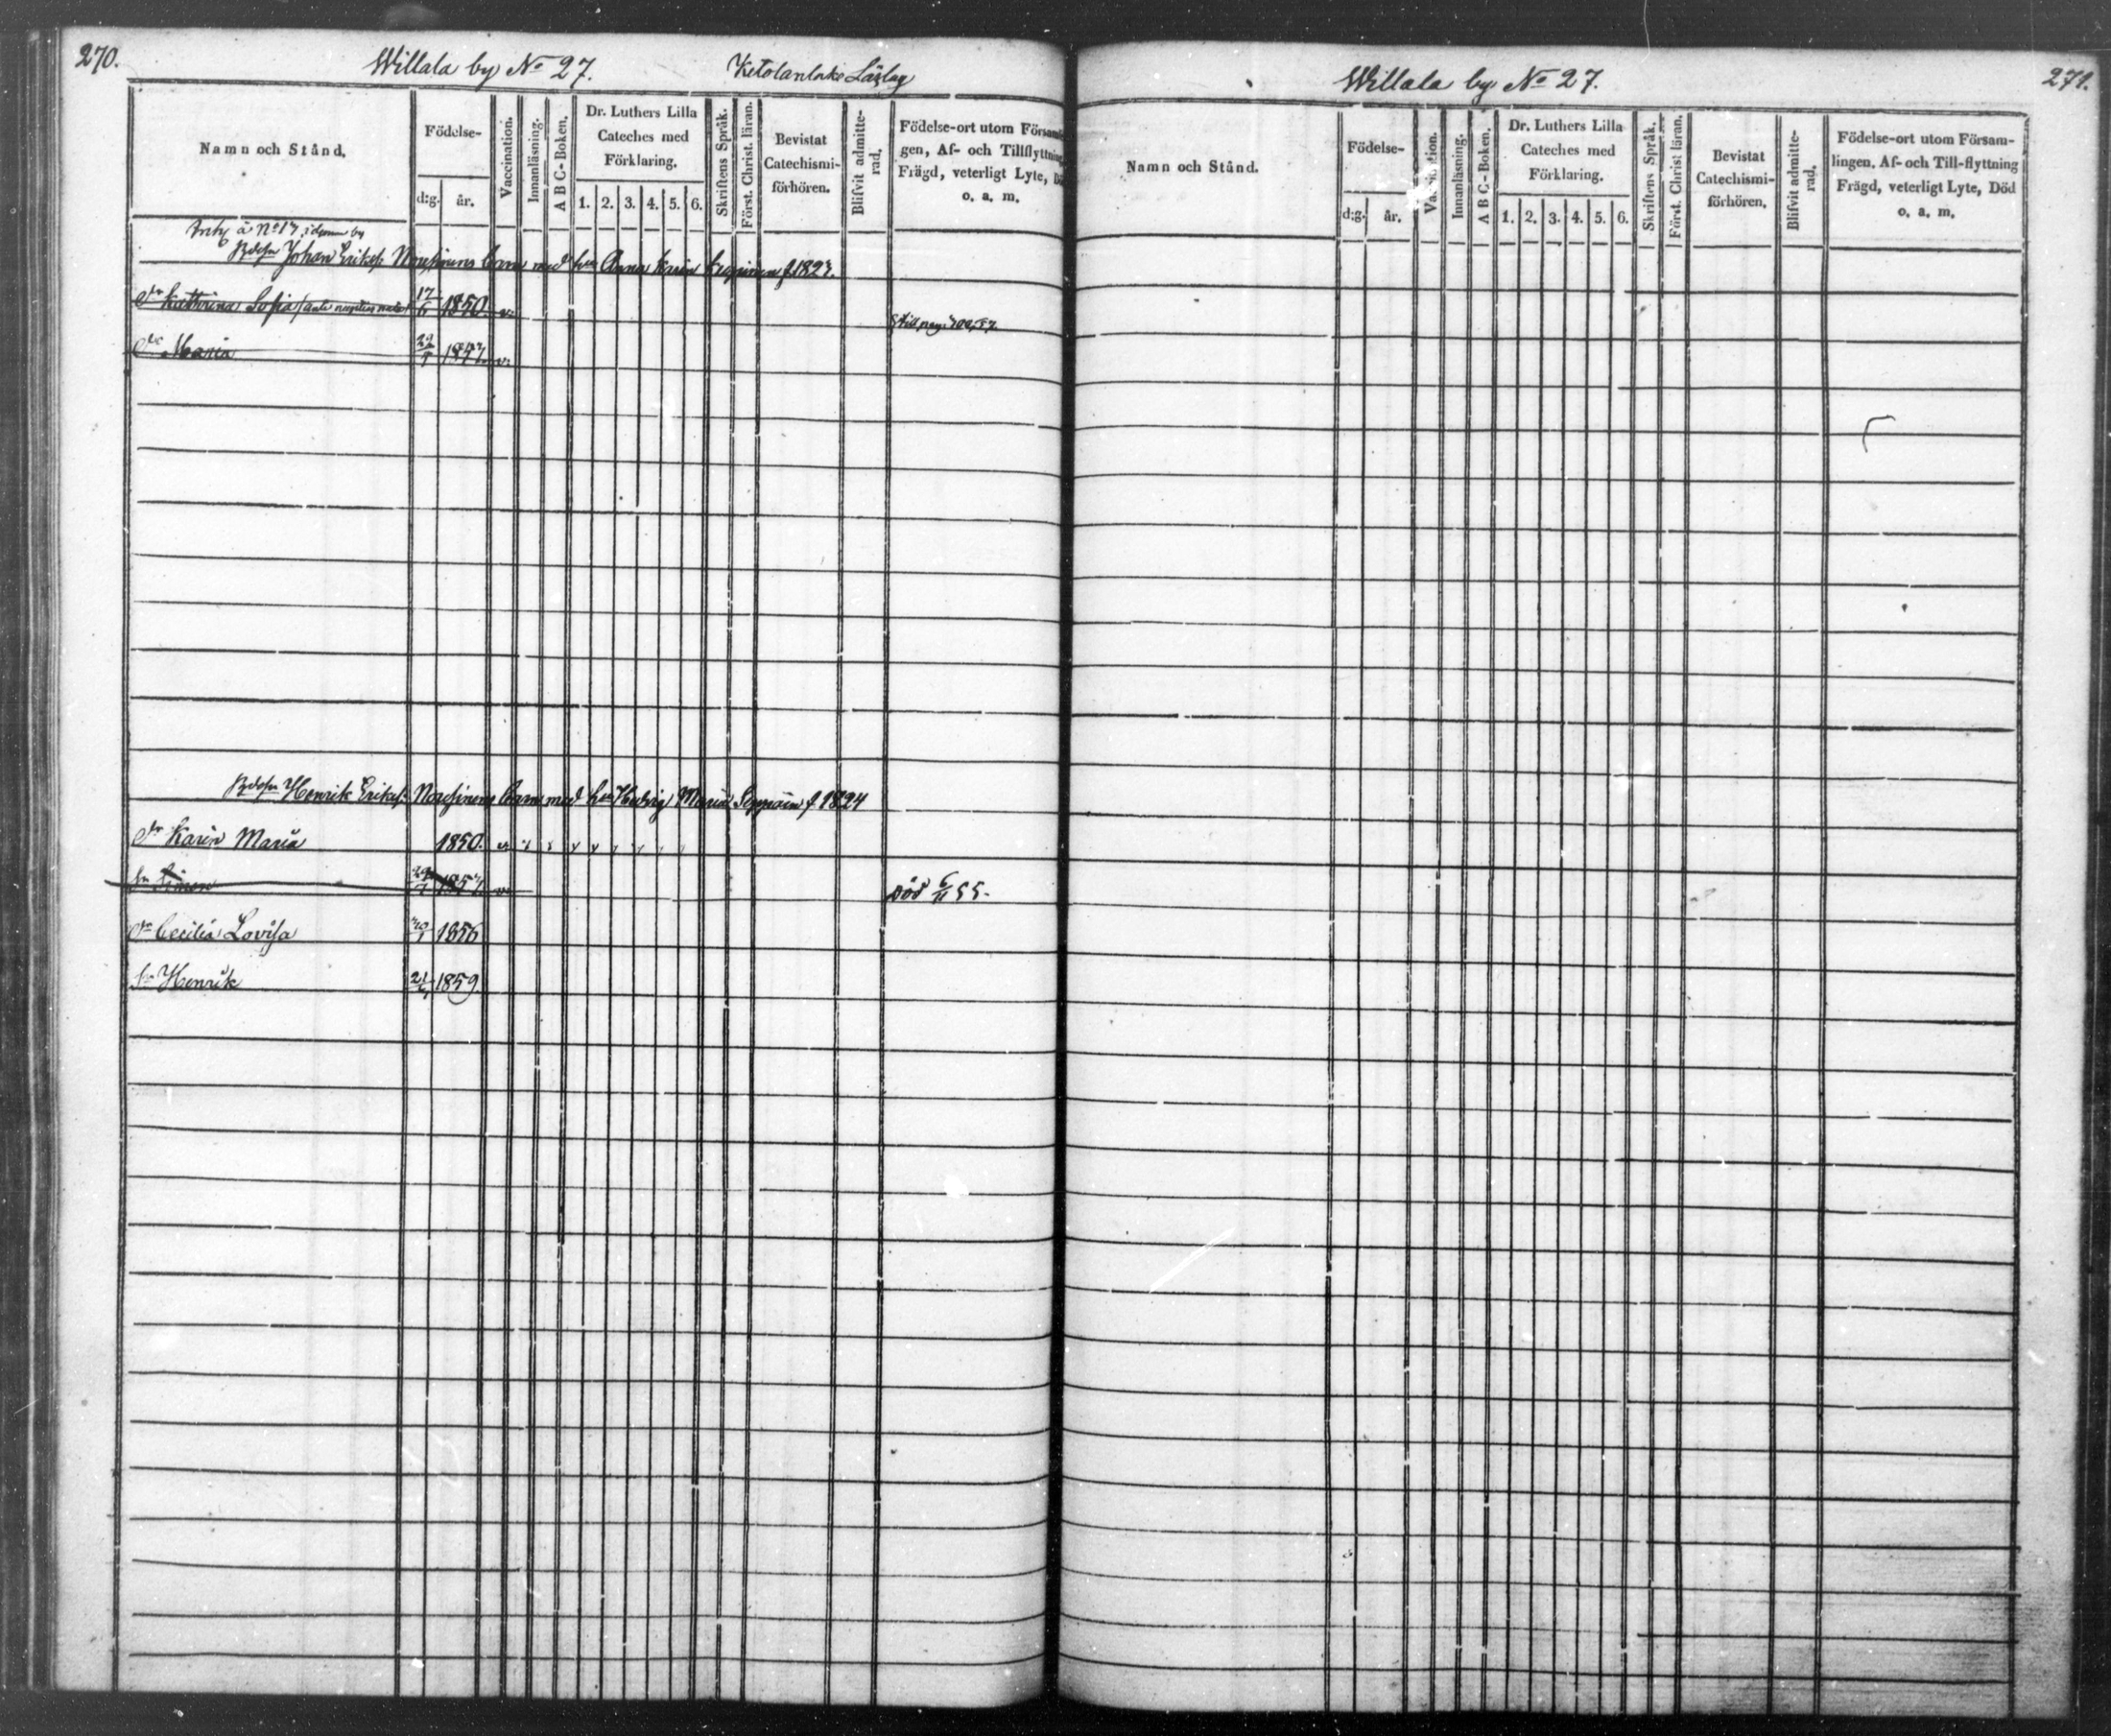 270.
Willala by No 27.
Ketolanlaks Läslag
Namn och Stånd.
Födelse-
d:g.
år.
Vaccination.
Innanläsning.
A B C-Boken.
Dr. Luthers Lilla
Cateches med
Förklaring.
1. 2. 3. 4. 5. 6.
Skriftens Språk.
Först. Christ. läran.
Bevistat
Catechismi-
förhören.
Blifvit admitte-
rad.
Födelse-ort utom Församl
gen, Af- och Tillflyttning
Frägd, veterligt Lyte, Dö
o. a. m.
à No 17 i by
Johan Eriks. barn med Anna Karin f 1827.
Dr Kathrina Sofia 17/6 1850. v.
Dr Maria v.
Henrik Eriks. barn med Hedvig Maria f 1824
Dr Karin Maria 1850.
Sn Simon Död 6/11 55.
Dr Cecilia Lovisa 1856
Sn Henrik 1859.
Willala by No 27.
271.
Namn och Stånd.
Födelse-
d:g.
år.
Innanläsning.
A B C-Boken.
Dr. Luthers Lilla
Cateches med
Förklaring.
1. 2. 3. 4. 5. 6.
Skriftens Språk.
Först. Christ läran.
Bevistat
Catechismi-
förhören.
Blifvit admitte-
rad.
Födelse-ort utom Försam-
lingen, Af- och Till-flyttning
Frägd, veterligt Lyte, Död
o. a. m.